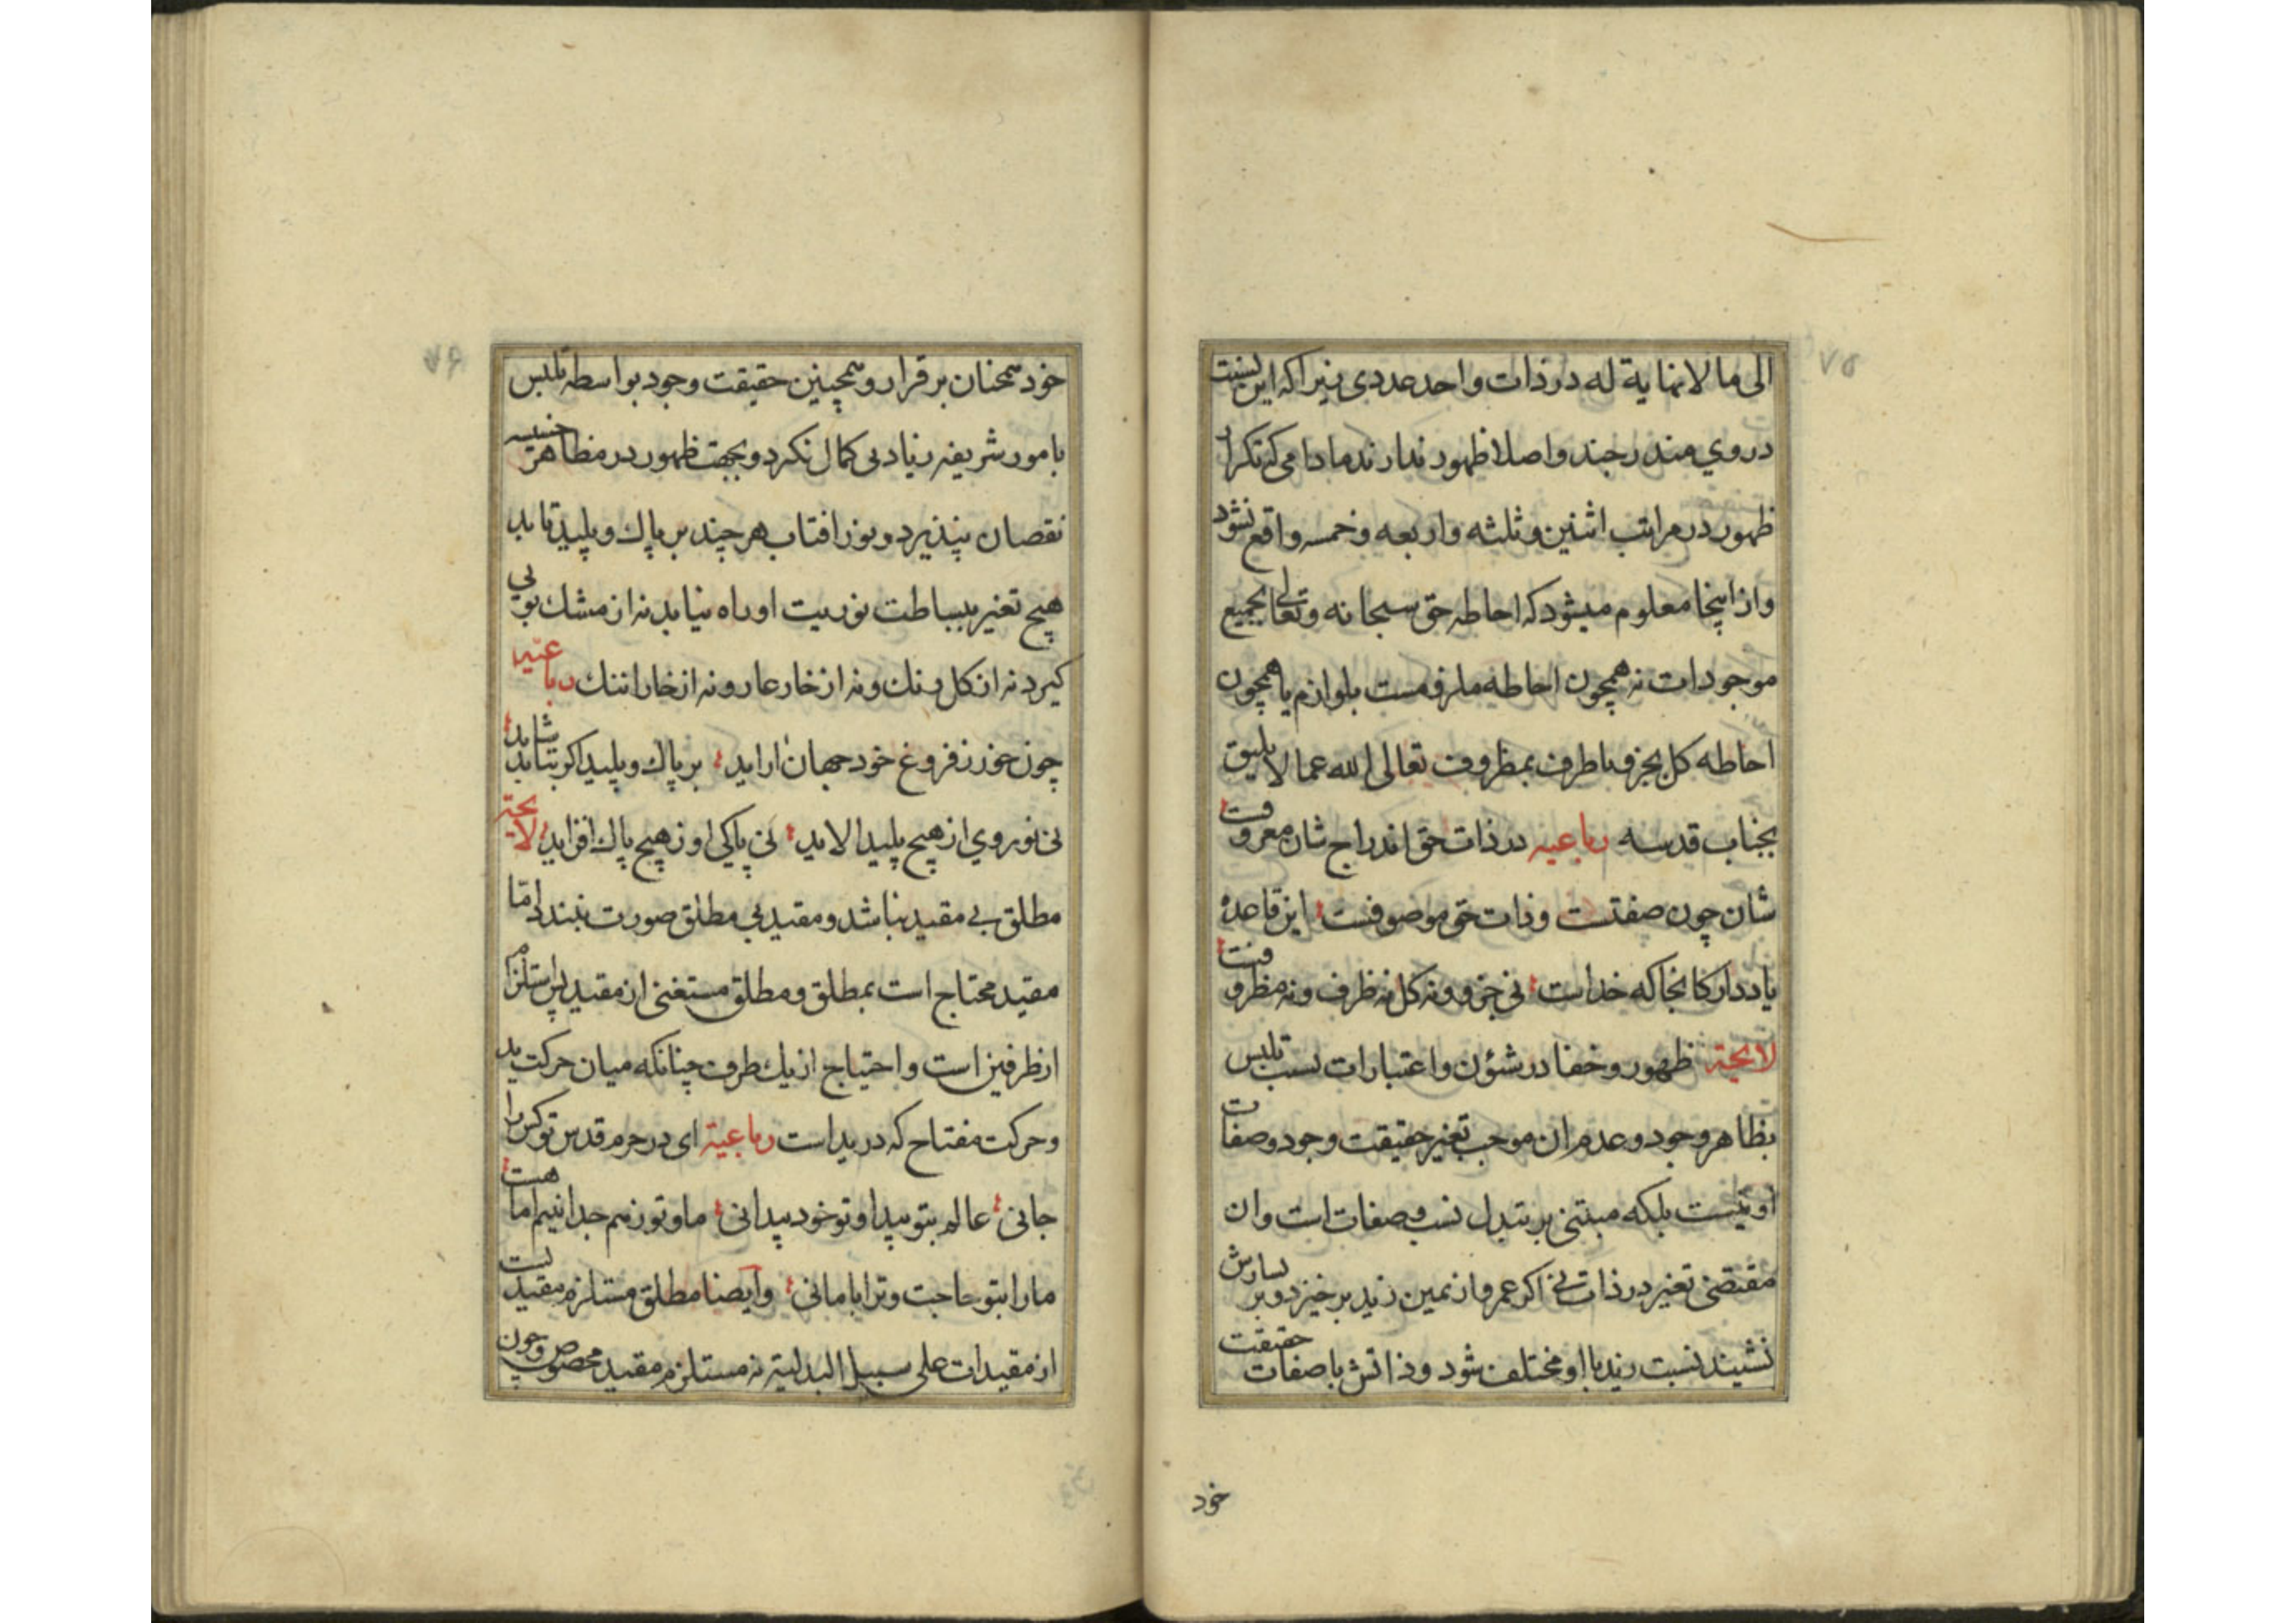 ٧٥
الی ما لا نهایة له در ذات واحد عددی زیرا که این نسبت
در وی مندرجند و اصلا ظهور ندارند مادامی که تکرار
ظهور در مراتب اثنین و ثلثه و اربعه و خمسه واقع نشود
و از اینجا معلوم میشود که احاطه حق سبحانه و تعالی بجمیع
موجودات نه همچون احاطه ملزومست بلوازم یا همچون
احاطه کل بجزو یا ظرف بمظروف تعالی الله عما لا یلیق
بجناب قدسه رباعیه در ذات حق اندراج شان معروفست
شان چون صفتست و ذات حق موصوفست این قاعده
یاد دار کانجا که خداست نی جزو و نه کل نه ظرف و نه مظروفست
لایحة ظهور و خفا در شئون و اعتبارات بسبب تلبس
بظاهر وجود و عدم ان موجب تغیر حقیقت وجود و صفات
او نیست بلکه مبتنی بر تبدل نسب و صفات است وان
مقتضی تغیر در ذات نی اکر عمرو از یمین زید بر خیزد و بر یسارش
نشیند نسبت زید با او مختلف شود و ذاتش با صفات حقیقت
خود
٧٦
خود همچنان بر قرار و همچنین حقیقت وجود بواسطه تلبس
بامور شریفه زیادی کمال نکرد و بجهت ظهور در مظاهر خسیسه
نقصان نپذیرد و نور افتاب هر چند بر پاك و پلید تابد
هیچ تغیر ببساطت نوریت او راه نیابد نه از مشك بوی
کیرد نه از کل رنك و نه از خار عار و نه از خارا ننك رباعیه
چون خور ز فروغ خود جهان اراید بر پاك و پلید اکر بتابد شاید
نی نور وی از هیچ پلید الاید نی پاکی او ز هیچ پاك افزاید لایحة
مطلق بی مقید نباشد و مقید بی مطلق صورت نبندد امّا
مقید محتاج است بمطلق و مطلق مستغنی از مقید پس استلزام
از طرفین است و احتیاج از یك طرف چنانکه میان حرکت ید
و حرکت مفتاح که در ید است رباعیة ای در حرم قدس تو کس را
جانی عالم بتو پیدا و تو خود پیدا نی ما و تو ز هم جدا نییم اما هست
ما را بتو حاجت و ترا با ما نی و ایضا مطلق مستلزم مقیدیست
از مقیدات علی سبیل البدلیة نه مستلزم مقید مخصوص و چون